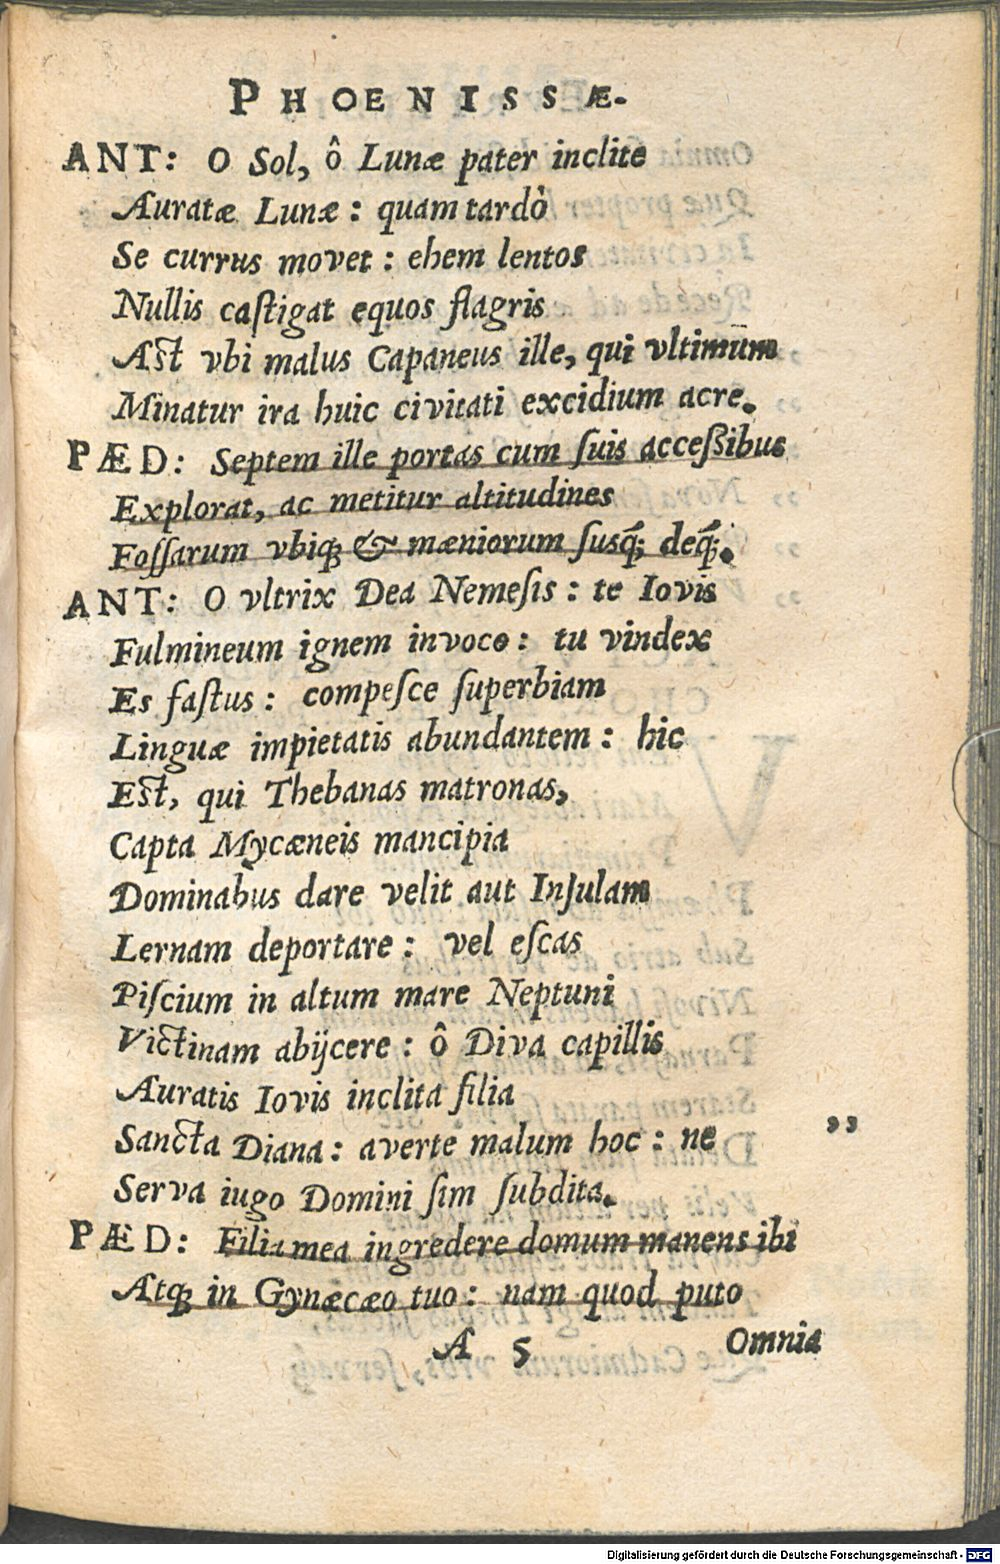 PHOENISSÆ.
ANT: O Sol, ô Lunæ pater inclite
Auratæ Lunæ : quam tardò
Se currus movet : ehem lentos
Nullis caſtigat equos flagris
Aſt vbi malus Capaneus ille, qui vltimum
Minatur ira huic civitati excidium acre.
PÆD: Septem ille portas cum ſuis acceſsibus
Explorat, ac metitur altitudines
Foſſarum vbiq; & mæniorum ſusq; deq;.
ANT: O vltrix Dea Nemeſis : te Iovis
Fulmineum ignem invoco : tu vindex
Es faſtus : compeſce ſuperbiam
Linguæ impietatis abundantem : hic
Eſt, qui Thebanas matronas,
Capta Mycæneis mancipia
Dominabus dare velit aut Inſulam
Lernam deportare : vel eſcas
Piſcium in altum mare Neptuni
Victinam abijcere : ô Diva capillis
Auratis Iovis inclita filia
Sancta Diana : averte malum hoc : ne „
Serva iugo Domini ſim ſubdita.
PÆD: Filia mea ingredere domum manens ibi
Atq; in Gynæcæo tuo : nam quod puto
A 5 Omnia
Digitalisierung gefördert durch die Deutsche Forschungsgemeinschaft - DFG